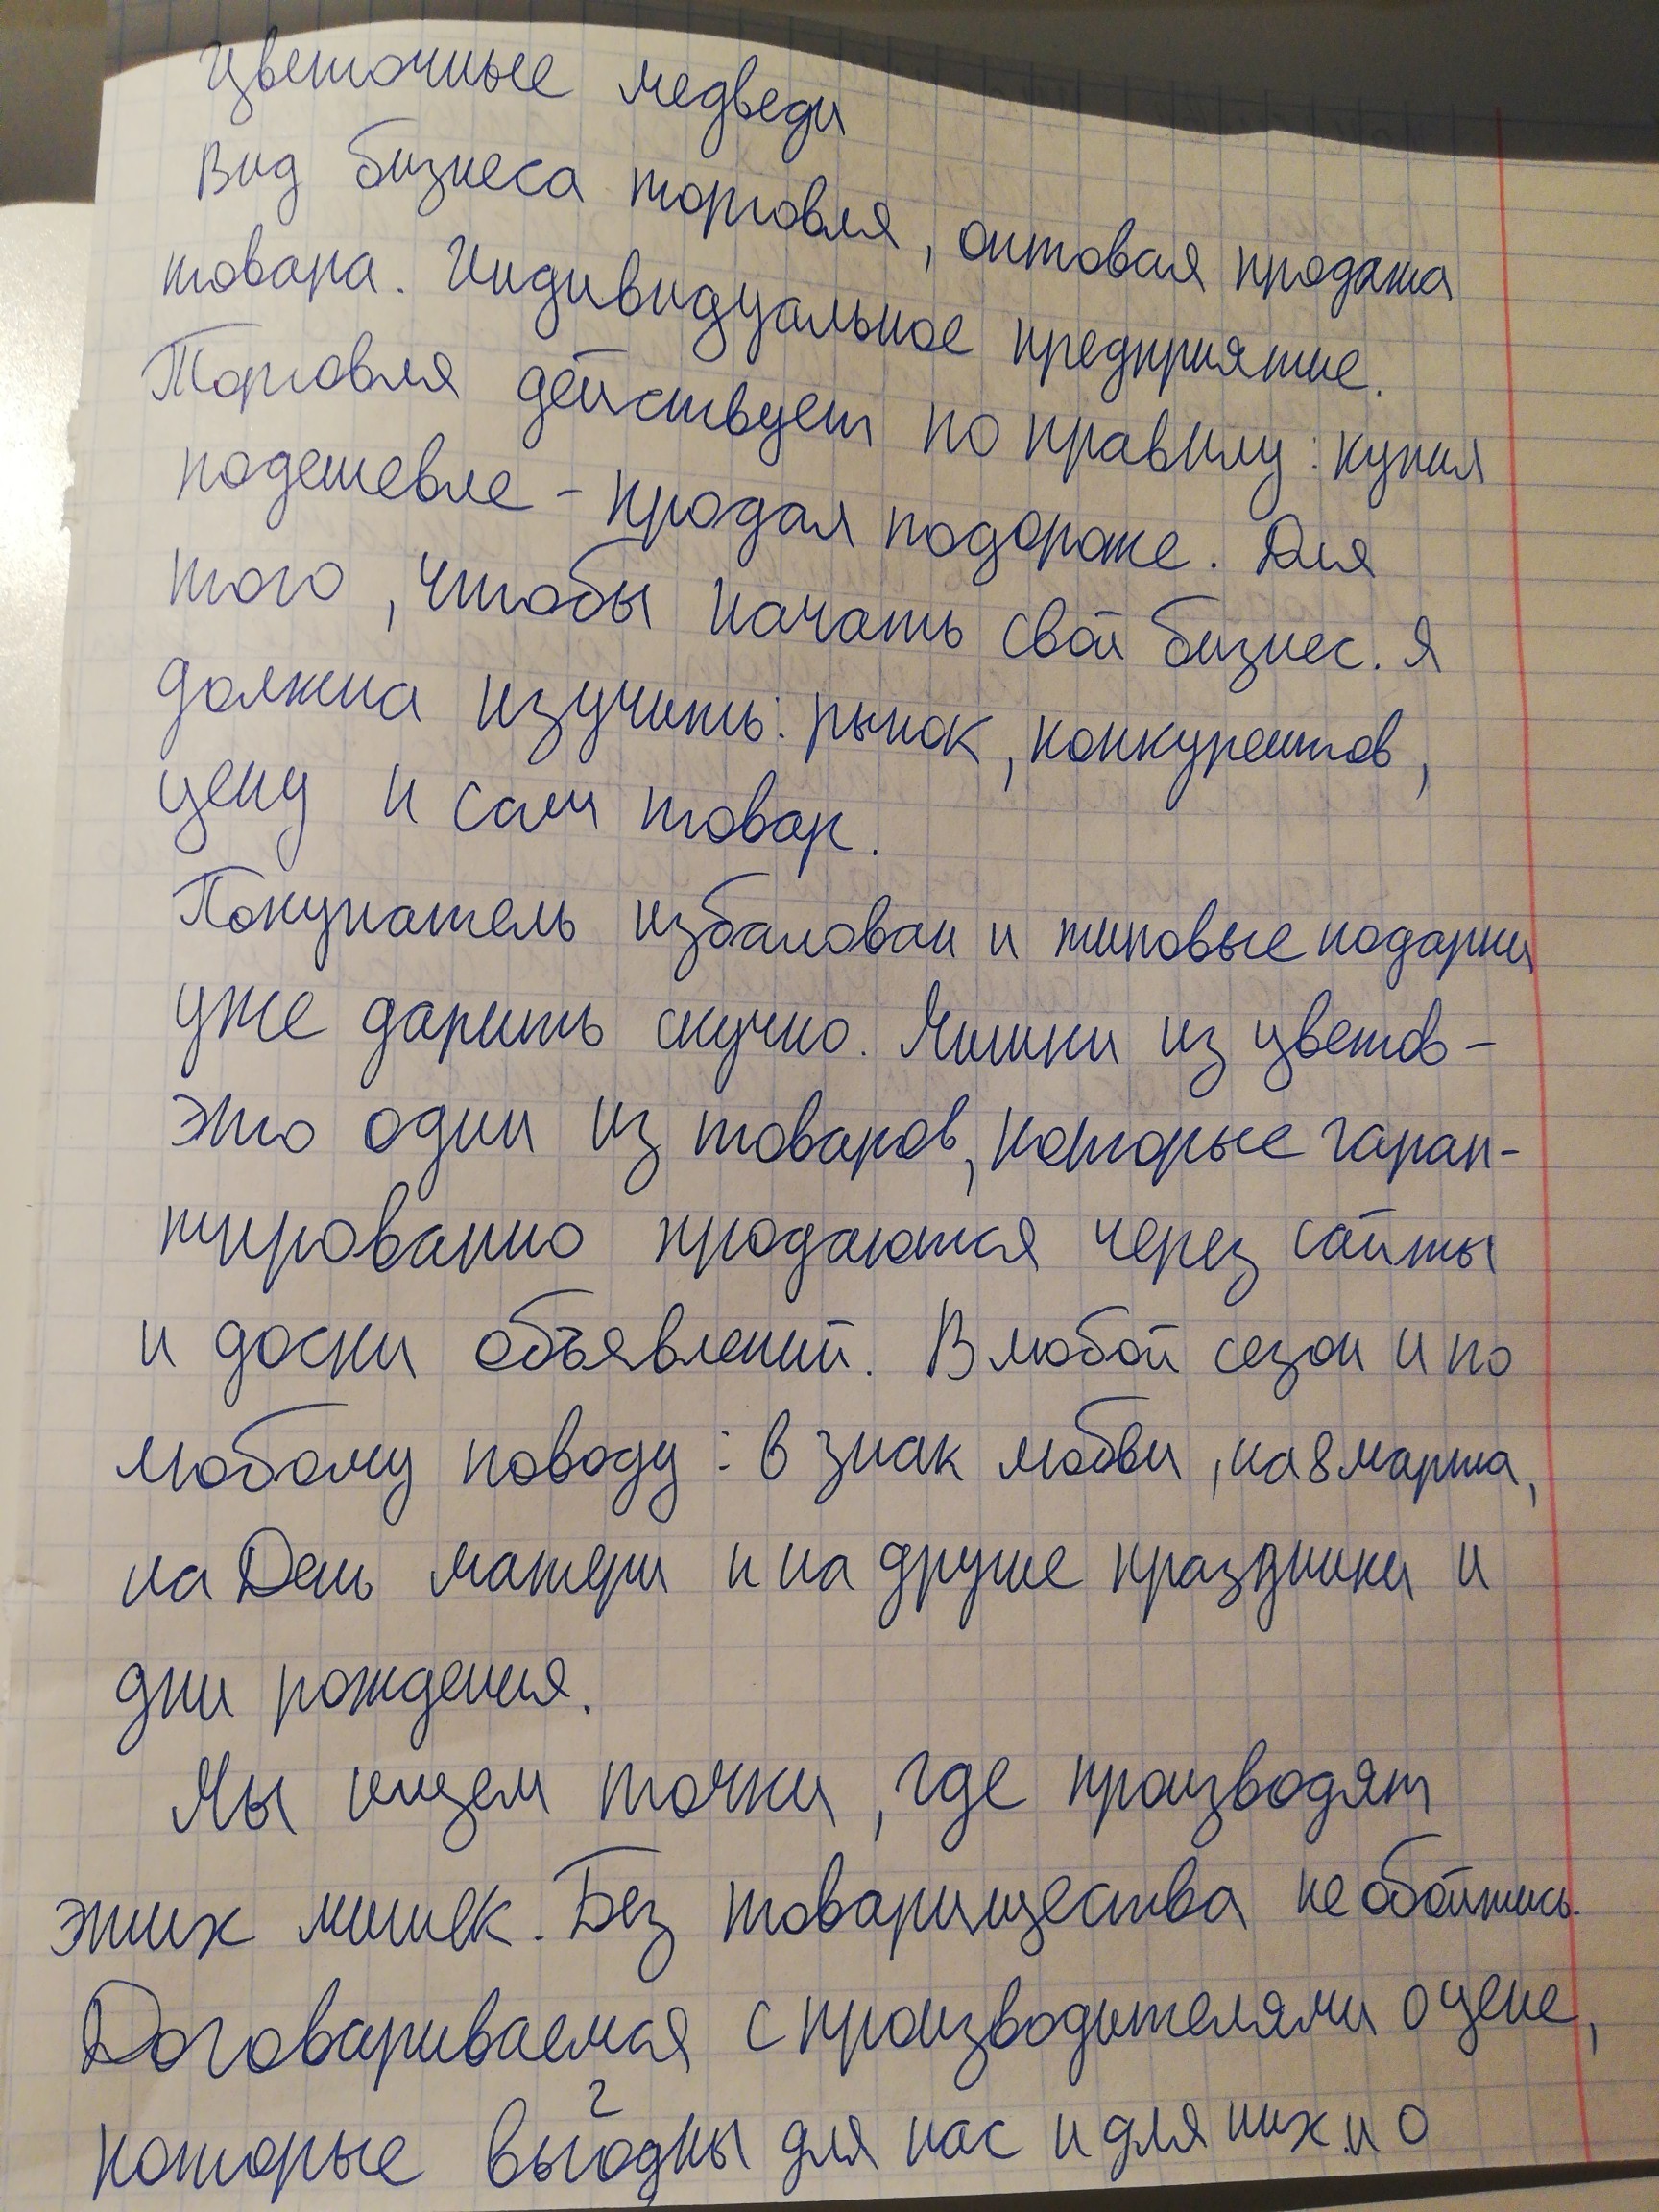 Цветочные медведи
Вид бизнеса торговля, оптовая продажа
товара. Индивидуальное предприятие.
Торговля действует по правилу: купил
подешевле - продал подороже. Для
того, чтобы начать свой бизнес. Я
должна изучить: рынок, конкурентов,
цену и сам товар.
Покупатель избалован и типовые подарки
уже дарить скучно. Мишки из цветов -
это один из товаров, которые гаран-
тированно продаются через сайты
и доски объявлений. В любой сезон и по
любому поводу: в знак любви, на 8 марта,
на День матери и на другие праздники и
дни рождения.
Мы ищем точки, где производят
этих мишек. Без товарищества не обойтись.
Договариваемся с производителями о цене,
которые выгодны для нас и для них и о